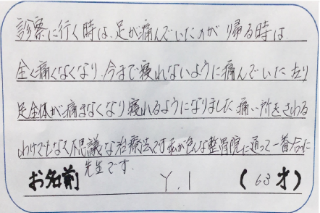 診察に行く時は、足が痛んでいたのが帰る時は
全く痛くなくなり、今まで寝れないように痛んでいた左り
足全体が痛まなくなり寝れるようになりました。痛い所をさわる
わけでもなく不思議な治療法です私が色んな整骨院に通って一番合に
先生です。
お名前 Y.I (63才)